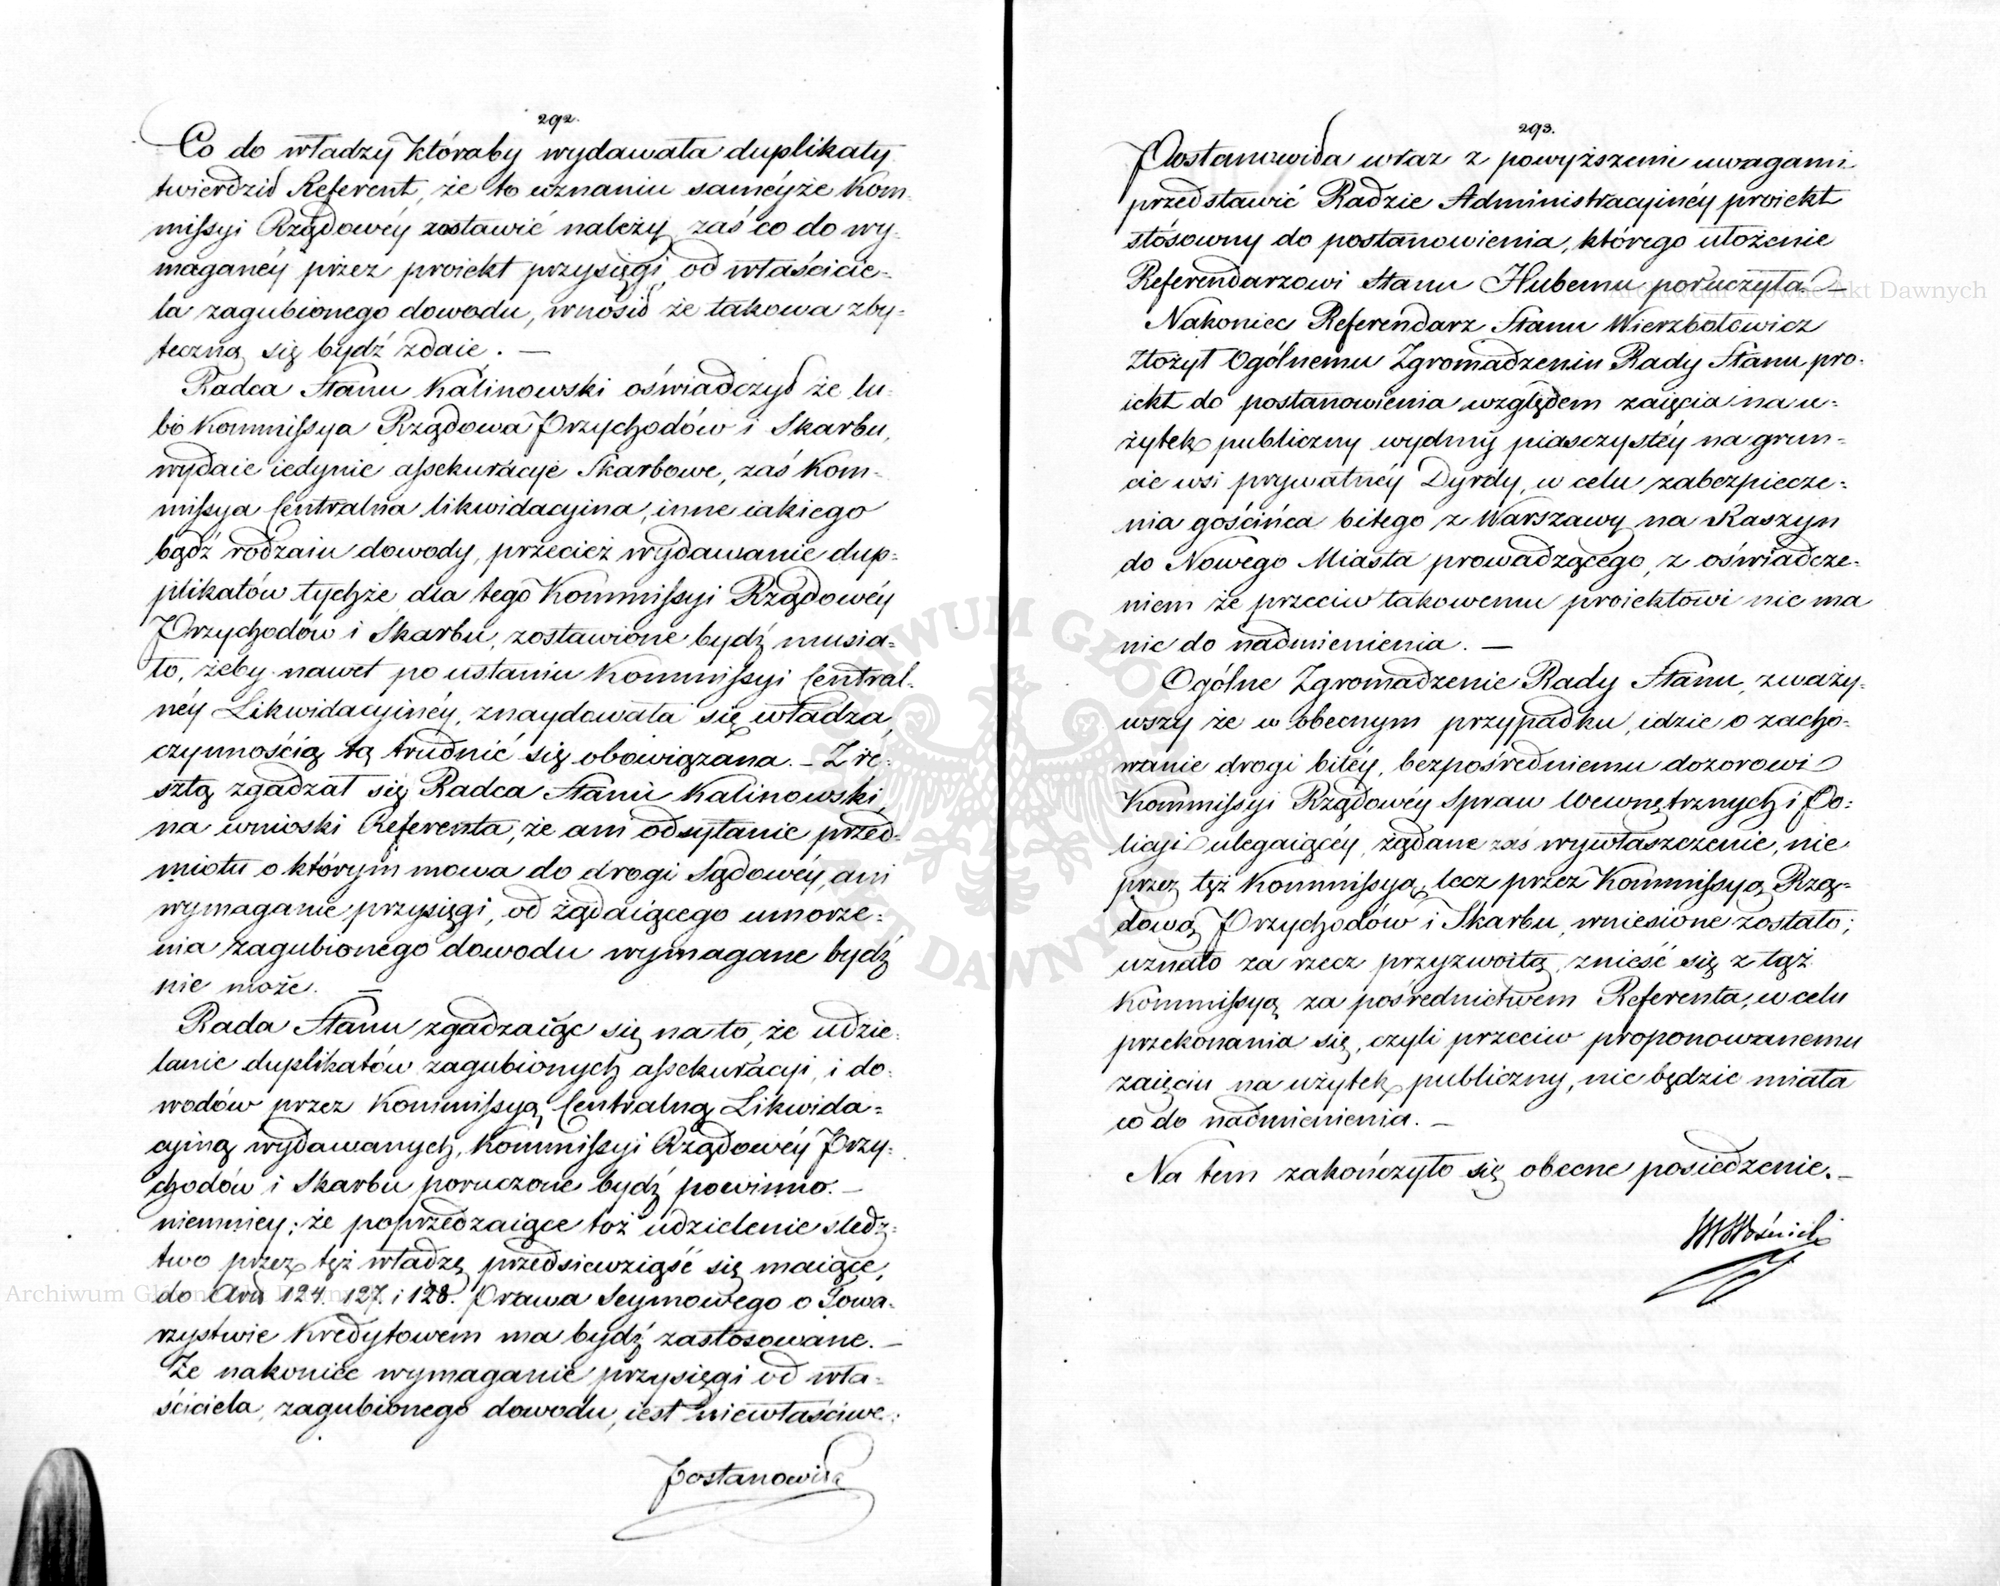 292.
Co do władzy któraby wydawała duplikaty
twierdził Referent, że to uznaniu saméyże Kom-
missyi Rządowéy zostawić należy, zaś co do wy-
maganéy przez proiekt przysięgi, od właścicie-
la zagubionego dowodu, wnosił że takowa zby-
teczną się bydź zdaie. —
Radca Stanu Kalinowski oświadczył że lu-
bo Kommissya Rządowa Przychodów i Skarbu,
wydaie iedynie assekuracye Skarbowe, zaś Kom-
missya Centralna likwidacyina, inne iakiego
bądź rodzaiu dowody, przecież wydawanie dup-
plikatów tychże dla tego Kommissyi Rządowéy
Przychodów i Skarbu, zostawione bydź musia-
ło, żeby nawet po ustaniu Kommissyi Central-
néy Likwidacyinéy, znaydowała się władza,
czynnością tą trudnić się obowiązana. — Z re-
sztą zgadzał się Radca Stanu Kalinowski,
na wnioski Referenta, że ani odsyłanie przed-
miotu o którym mowa do drogi Sądowéy, ani
wymaganie przysięgi, od żądaiącego umorze-
nia zagubionego dowodu wymagane bydź
nie może. —
Rada Stanu zgadzaiąc się na to, że udzie-
lanie duplikatów zagubionych assekuracyi, i do-
wodów przez Kommissyą Centralną Likwida-
cyiną wydawanych, Kommissyi Rządowéy Przy-
chodów i Skarbu poruczone bydź powinno. —
niemniey; że poprzedzaiące toż udzielenie sledz-
two przez tęż władzę przedsiewziąść się maiące,
do Artt 124. 127. i 128. Prawa Seymowego o Towa-
rzystwie Kredytowem ma bydź zastosowane. —
Że nakoniec wymaganie przysięgi od wła-
ściciela, zagubionego dowodu, iest niewłaściwe;
Postanowiła
293.
Postanowiła wraz z powyższemi uwagami
przedstawić Radzie Administracyinéy proiekt
stosowny do postanowienia, którego ułożenie
Referendarzowi Stanu Hubemu poruczyła. —
Nakoniec Referendarz Stanu Wierzbołowicz
złożył Ogólnemu Zgromadzeniu Rady Stanu pro-
iekt do postanowienia względem zaięcia na u-
żytek publiczny wydmy piasczystéy na grun-
cie wsi prywatnéy Dyrdy, w celu zabezpiecze-
nia gościńca bitego z Warszawy na Raszyn
do Nowego Miasta prowadzącego, z oświadcze-
niem że przeciw takowemu proiektowi nic ma
nic do nadmienienia. —
Ogólne Zgromadzenie Rady Stanu, zważy-
wszy że w obecnym przypadku, idzie o zacho-
wanie drogi bitéy, bezpośredniemu dozorowi
Kommissyi Rządowéy Spraw Wewnętrznych i Po-
licyi ulegaiącéy, żądane zaś wywłaszczenie, nie
przez tęż Kommissyą, lecz przez Kommissyą Rzą-
dową Przychodów i Skarbu, wniesione zostało;
uznało za rzecz przyzwoitą, znieść się z tąż
Kommissyą za pośrednictwem Referenta, w celu
przekonania się, czyli przeciw proponowanemu
zaięciu na użytek publiczny, nic będzie miała
co do nadmienienia. —
Na tem zakończyło się obecne posiedzenie. —
Archiwum Główne Akt Dawnych